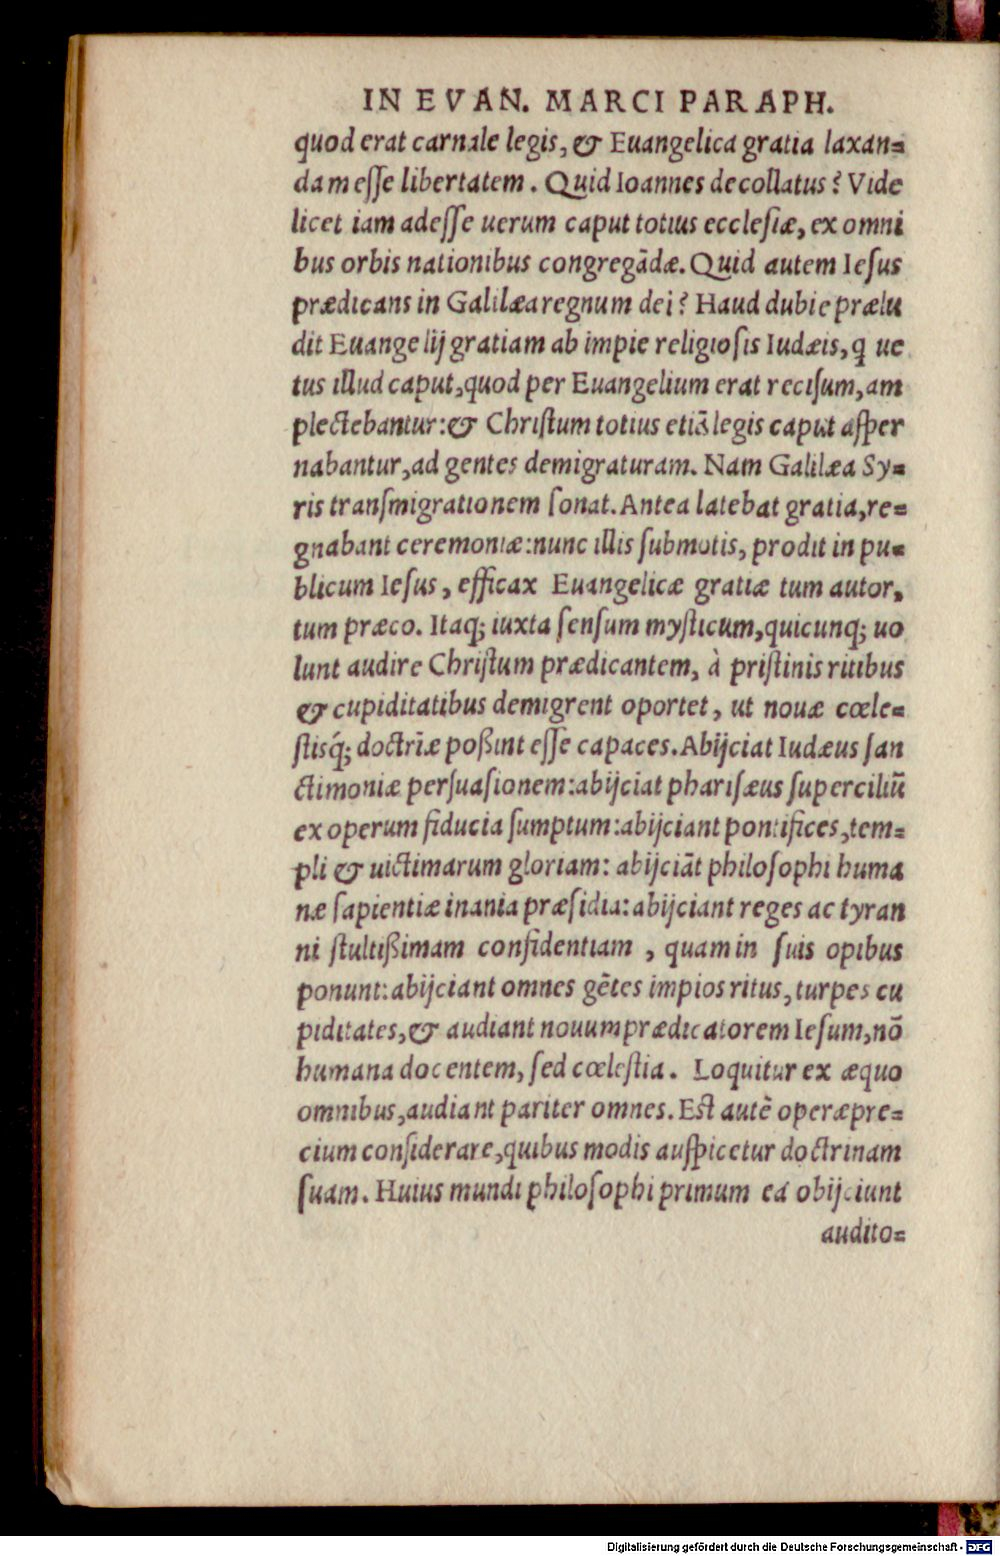 IN EVAN. MARCI PARAPH.
quod erat carnale legis, & Euangelica gratia laxan=
dam esse libertatem. Quid Ioannes decollatus? Vide
licet iam adesse uerum caput totius ecclesiæ, ex omni
bus orbis nationibus congregãdæ. Quid autem Iesus
prædicans in Galilæa regnum dei? Haud dubie prælu
dit Euangelij gratiam ab impie religiosis Iudæis, ꝗ ue
tus illud caput, quod per Euangelium erat recisum, am
plectebantur: & Christum totius etiã legis caput asper
nabantur, ad gentes demigraturam. Nam Galilæa Sy=
ris transmigrationem sonat. Antea latebat gratia, re=
gnabant ceremoniæ: nunc illis submotis, prodit in pu=
blicum Iesus, efficax Euangelicæ gratiæ tum autor,
tum præco. Itaq; iuxta sensum mysticum, quicunq; uo
lunt audire Christum prædicantem, à pristinis ritibus
& cupiditatibus demigrent oportet, ut nouæ cœle=
stisq́; doctrīæ poßint esse capaces. Abijciat Iudæus san
ctimoniæ persuasionem: abijciat pharisæus superciliũ
ex operum fiducia sumptum: abijciant pontifices, tem=
pli & uictimarum gloriam: abijciãt philosophi huma
næ sapientiæ inania præsidia: abijciant reges ac tyran
ni stultißimam confidentiam, quam in suis opibus
ponunt: abijciant omnes gẽtes impios ritus, turpes cu
piditates, & audiant nouum prædicatorem Iesum, nõ
humana docentem, sed cœlestia. Loquitur ex æquo
omnibus, audiant pariter omnes. Est autẽ operæpre=
cium considerare, quibus modis auspicetur doctrinam
suam. Huius mundi philosophi primum ea obijciunt
audito=
Digitalisierung gefördert durch die Deutsche Forschungsgemeinschaft - DFG